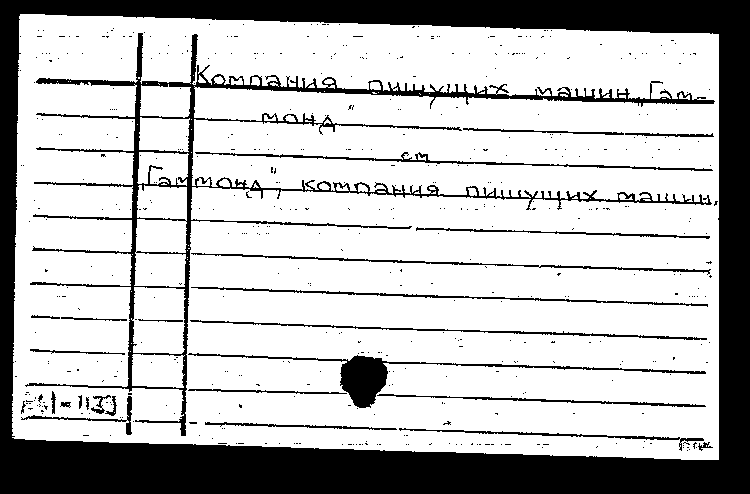 Компания пишущих машин „Гам-
монд"
см
„Гаммонд", компания пишущих машин.